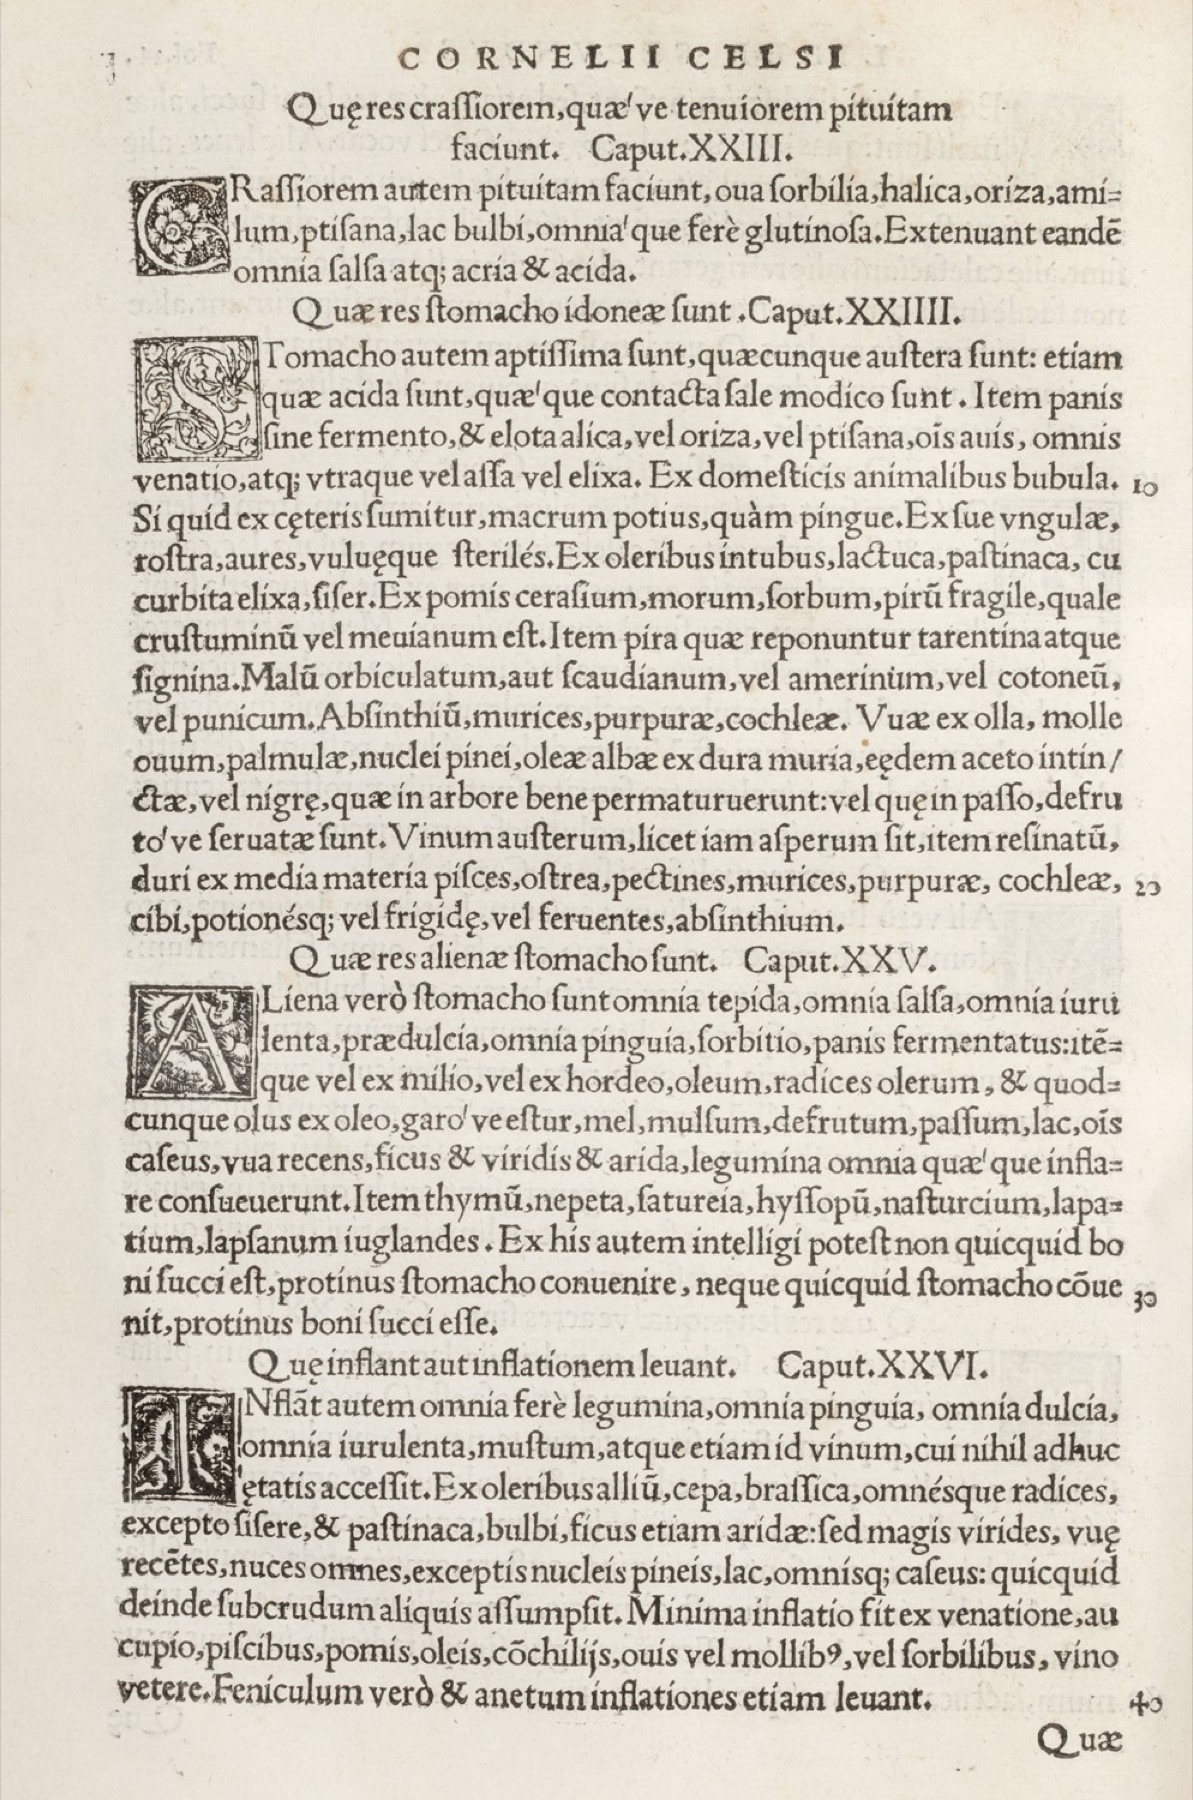 CORNELII CELSI
Quę res crassiorem, quæ've tenuiorem pituitam
faciunt. Caput. XXIII.
CRassiorem autem pituitam faciunt, oua sorbilia, halica, oriza, ami=
lum, ptisana, lac bulbi, omnia'que ferè glutinosa. Extenuant eandē
omnia salsa atq; acria & acida.
Quæ res stomacho idoneæ sunt. Caput. XXIIII.
STomacho autem aptissima sunt, quæcunque austera sunt: etiam
quæ acida sunt, quæ'que contacta sale modico sunt. Item panis
sine fermento, & elota alica, vel oriza, vel ptisana, oīs auis, omnis
venatio, atq; vtraque vel assa vel elixa. Ex domesticis animalibus bubula. 10
Si quid ex cęteris sumitur, macrum potius, quàm pingue. Ex sue vngulæ,
rostra, aures, vuluęque sterilés. Ex oleribus intubus, lactuca, pastinaca, cu
curbita elixa, siser. Ex pomis cerasium, morum, sorbum, pirū fragile, quale
crustuminū vel meuianum est. Item pira quæ reponuntur tarentina atque
signina. Malū orbiculatum, aut scaudianum, vel amerinum, vel cotoneū,
vel punicum. Absinthiū, murices, purpuræ, cochleæ. Vuæ ex olla, molle
ouum, palmulæ, nuclei pinei, oleæ albæ ex dura muria, eędem aceto intin/
ctæ, vel nigrę, quæ in arbore bene permaturuerunt: vel quę in passo, defru
to've seruatæ sunt. Vinum austerum, licet iam asperum sit, item resinatū,
duri ex media materia pisces, ostrea, pectines, murices, purpuræ, cochleæ, 20
cibi, potionésq; vel frigidę, vel feruentes, absinthium.
Quæ res alienæ stomacho sunt. Caput. XXV.
ALiena verò stomacho sunt omnia tepida, omnia salsa, omnia iuru
lenta, prædulcia, omnia pinguia, sorbitio, panis fermentatus: itē=
que vel ex milio, vel ex hordeo, oleum, radices olerum, & quod=
cunque olus ex oleo, garo've estur, mel, mulsum, defrutum, passum, lac, oīs
caseus, vua recens, ficus & viridis & arida, legumina omnia quæ'que infla=
re consueuerunt. Item thymū, nepeta, satureia, hyssopū, nasturcium, lapa=
tium, lapsanum iuglandes. Ex his autem intelligi potest non quicquid bo
ni succi est, protinus stomacho conuenire, neque quicquid stomacho cōue 30
nit, protinus boni succi esse.
Quę inflant aut inflationem leuant. Caput. XXVI.
INflāt autem omnia ferè legumina, omnia pinguia, omnia dulcia,
omnia iurulenta, mustum, atque etiam id vinum, cui nihil adhuc
ętatis accessit. Ex oleribus alliū, cepa, brassica, omnésque radices,
excepto sisere, & pastinaca, bulbi, ficus etiam aridæ: sed magis virides, vuę
recētes, nuces omnes, exceptis nucleis pineis, lac, omnisq; caseus: quicquid
deinde subcrudum aliquis assumpsit. Minima inflatio fit ex venatione, au
cupio, piscibus, pomis, oleis, cōchilijs, ouis vel mollibꝰ, vel sorbilibus, vino
vetere. Feniculum verò & anetum inflationes etiam leuant. 40
Quæ